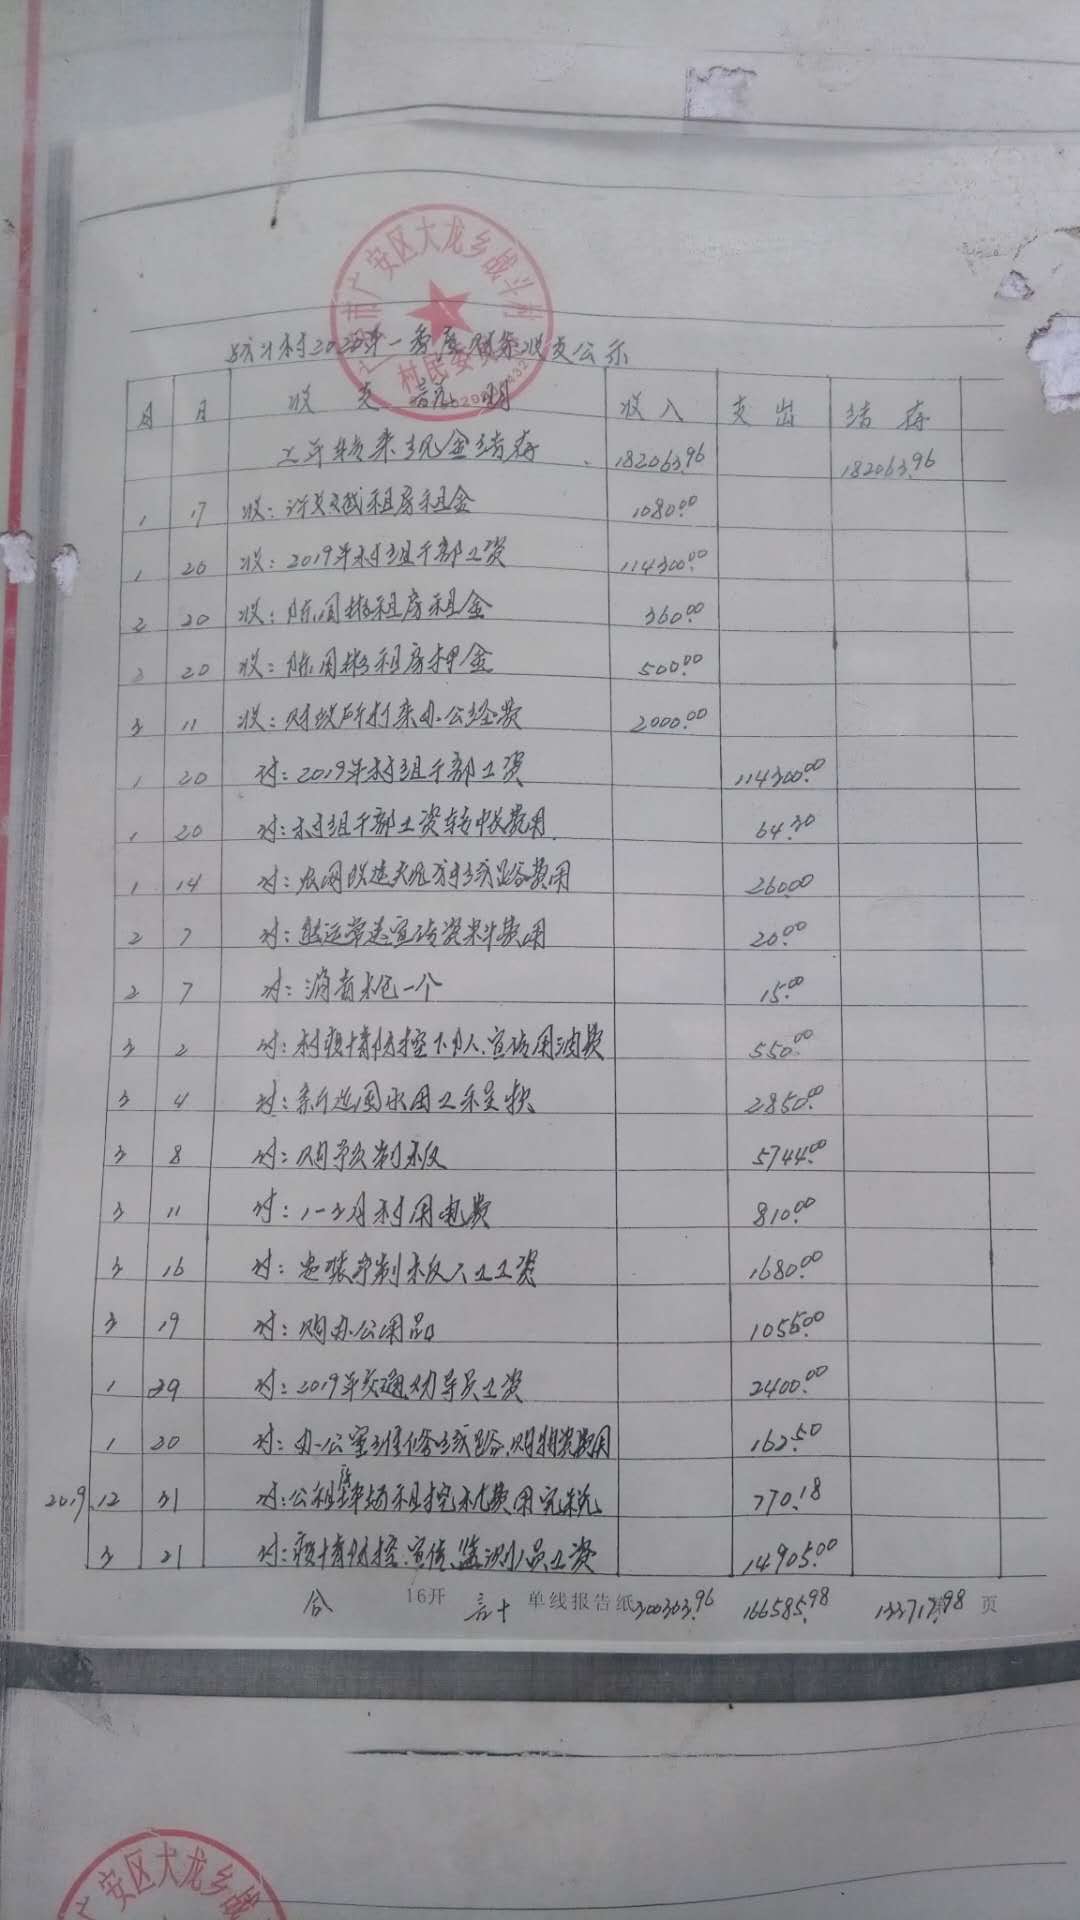 市广安区大龙乡战斗村
村民委
战斗村2020年一季度财务收支公示
月 日 收 支 说 明 收入 支出 结存
上年转来现金结存 182063.96 182063.96
1 17 收: 租房租金 1080.00
1 20 收: 2019年村组干部工资 114300.00
2 20 收: 陈周彬租房租金 360.00
2 20 收: 陈周彬租房押金 500.00
3 11 收: 财政所打来办公经费 2000.00
1 20 付: 2019年村组干部工资 114300.00
1 20 付: 村组干部工资转帐费用 64.30
1 14 付: 农网改造 线路费用 260.00
2 7 付: 宣传资料费用 20.00
2 7 付: 消毒 一个 15.00
3 2 付: 村疫情防控 宣传用油费 550.00
3 4 付: 2850.00
3 8 付: 购予制板 5744.00
3 11 付: 1-3月村用电费 810.00
3 16 付: 安装予制板人工工资 1680.00
3 19 付: 购办公用品 1055.00
1 29 付: 2019年交通劝导员工资 2400.00
1 20 付: 办公室维修线路,购物资费用 162.50
2019 12 31 付: 公租房 费用完税 770.18
3 21 付: 疫情防控,宣传,监测人员工资 14905.00
合 计 16开 单线报告纸 300303.96 166585.98 133717.98 页
广安区大龙乡战